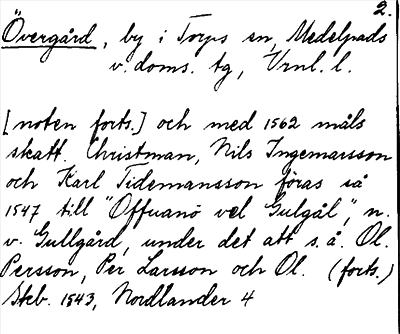 2.
Övergård, by i Torps sn, Medelpads
v. doms. tg, Vrnl. l.
[noten forts.] och med 1562 måls
skatt. Christman, Nils Ingemarsson
och Karl Tidemansson föras så
1547 till "Offuanö vel Gulgål", n.
v. Gullgård, under det att s. å. Ol.
Persson, Per Larsson och Ol. (forts.)
Skb. 1543, Nordlander 4